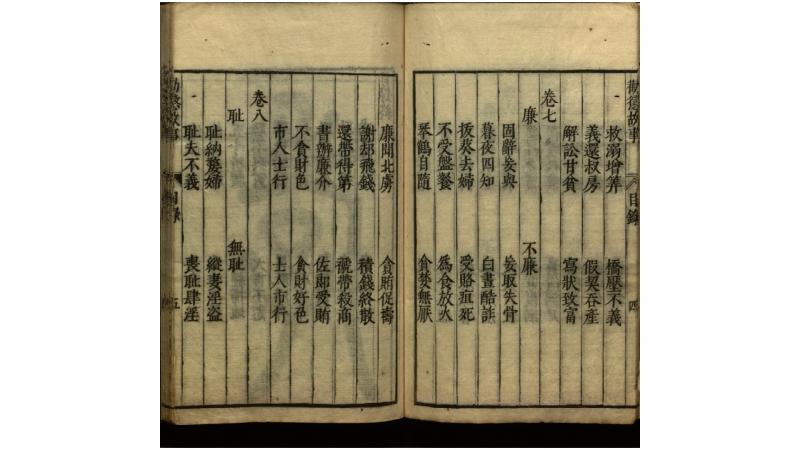 勸懲故事 目錄 四
救溺增筭 橋壓不義
義還叔房 假契吞產
解訟甘貧 寫狀致富
卷七
廉 不廉
固辭妄與 妄取失骨
暮夜四知 白晝酷詐
拔葵去婦 受賂疽死
不受盤餐 為食放火
琴鶴自隨 貪婪無厭
廉聞北虜 貪賄促壽
謝却飛錢 積錢終散
還帶得第 帶殺商
書辦廉介 佐郎愛賄
不貪財色 貪財好色
市人士行 士人市行
卷八
耻 無耻
耻納嫠婦 縱妻淫盜
耻夫不義 喪耻肆淫
勸懲故事 目錄 五